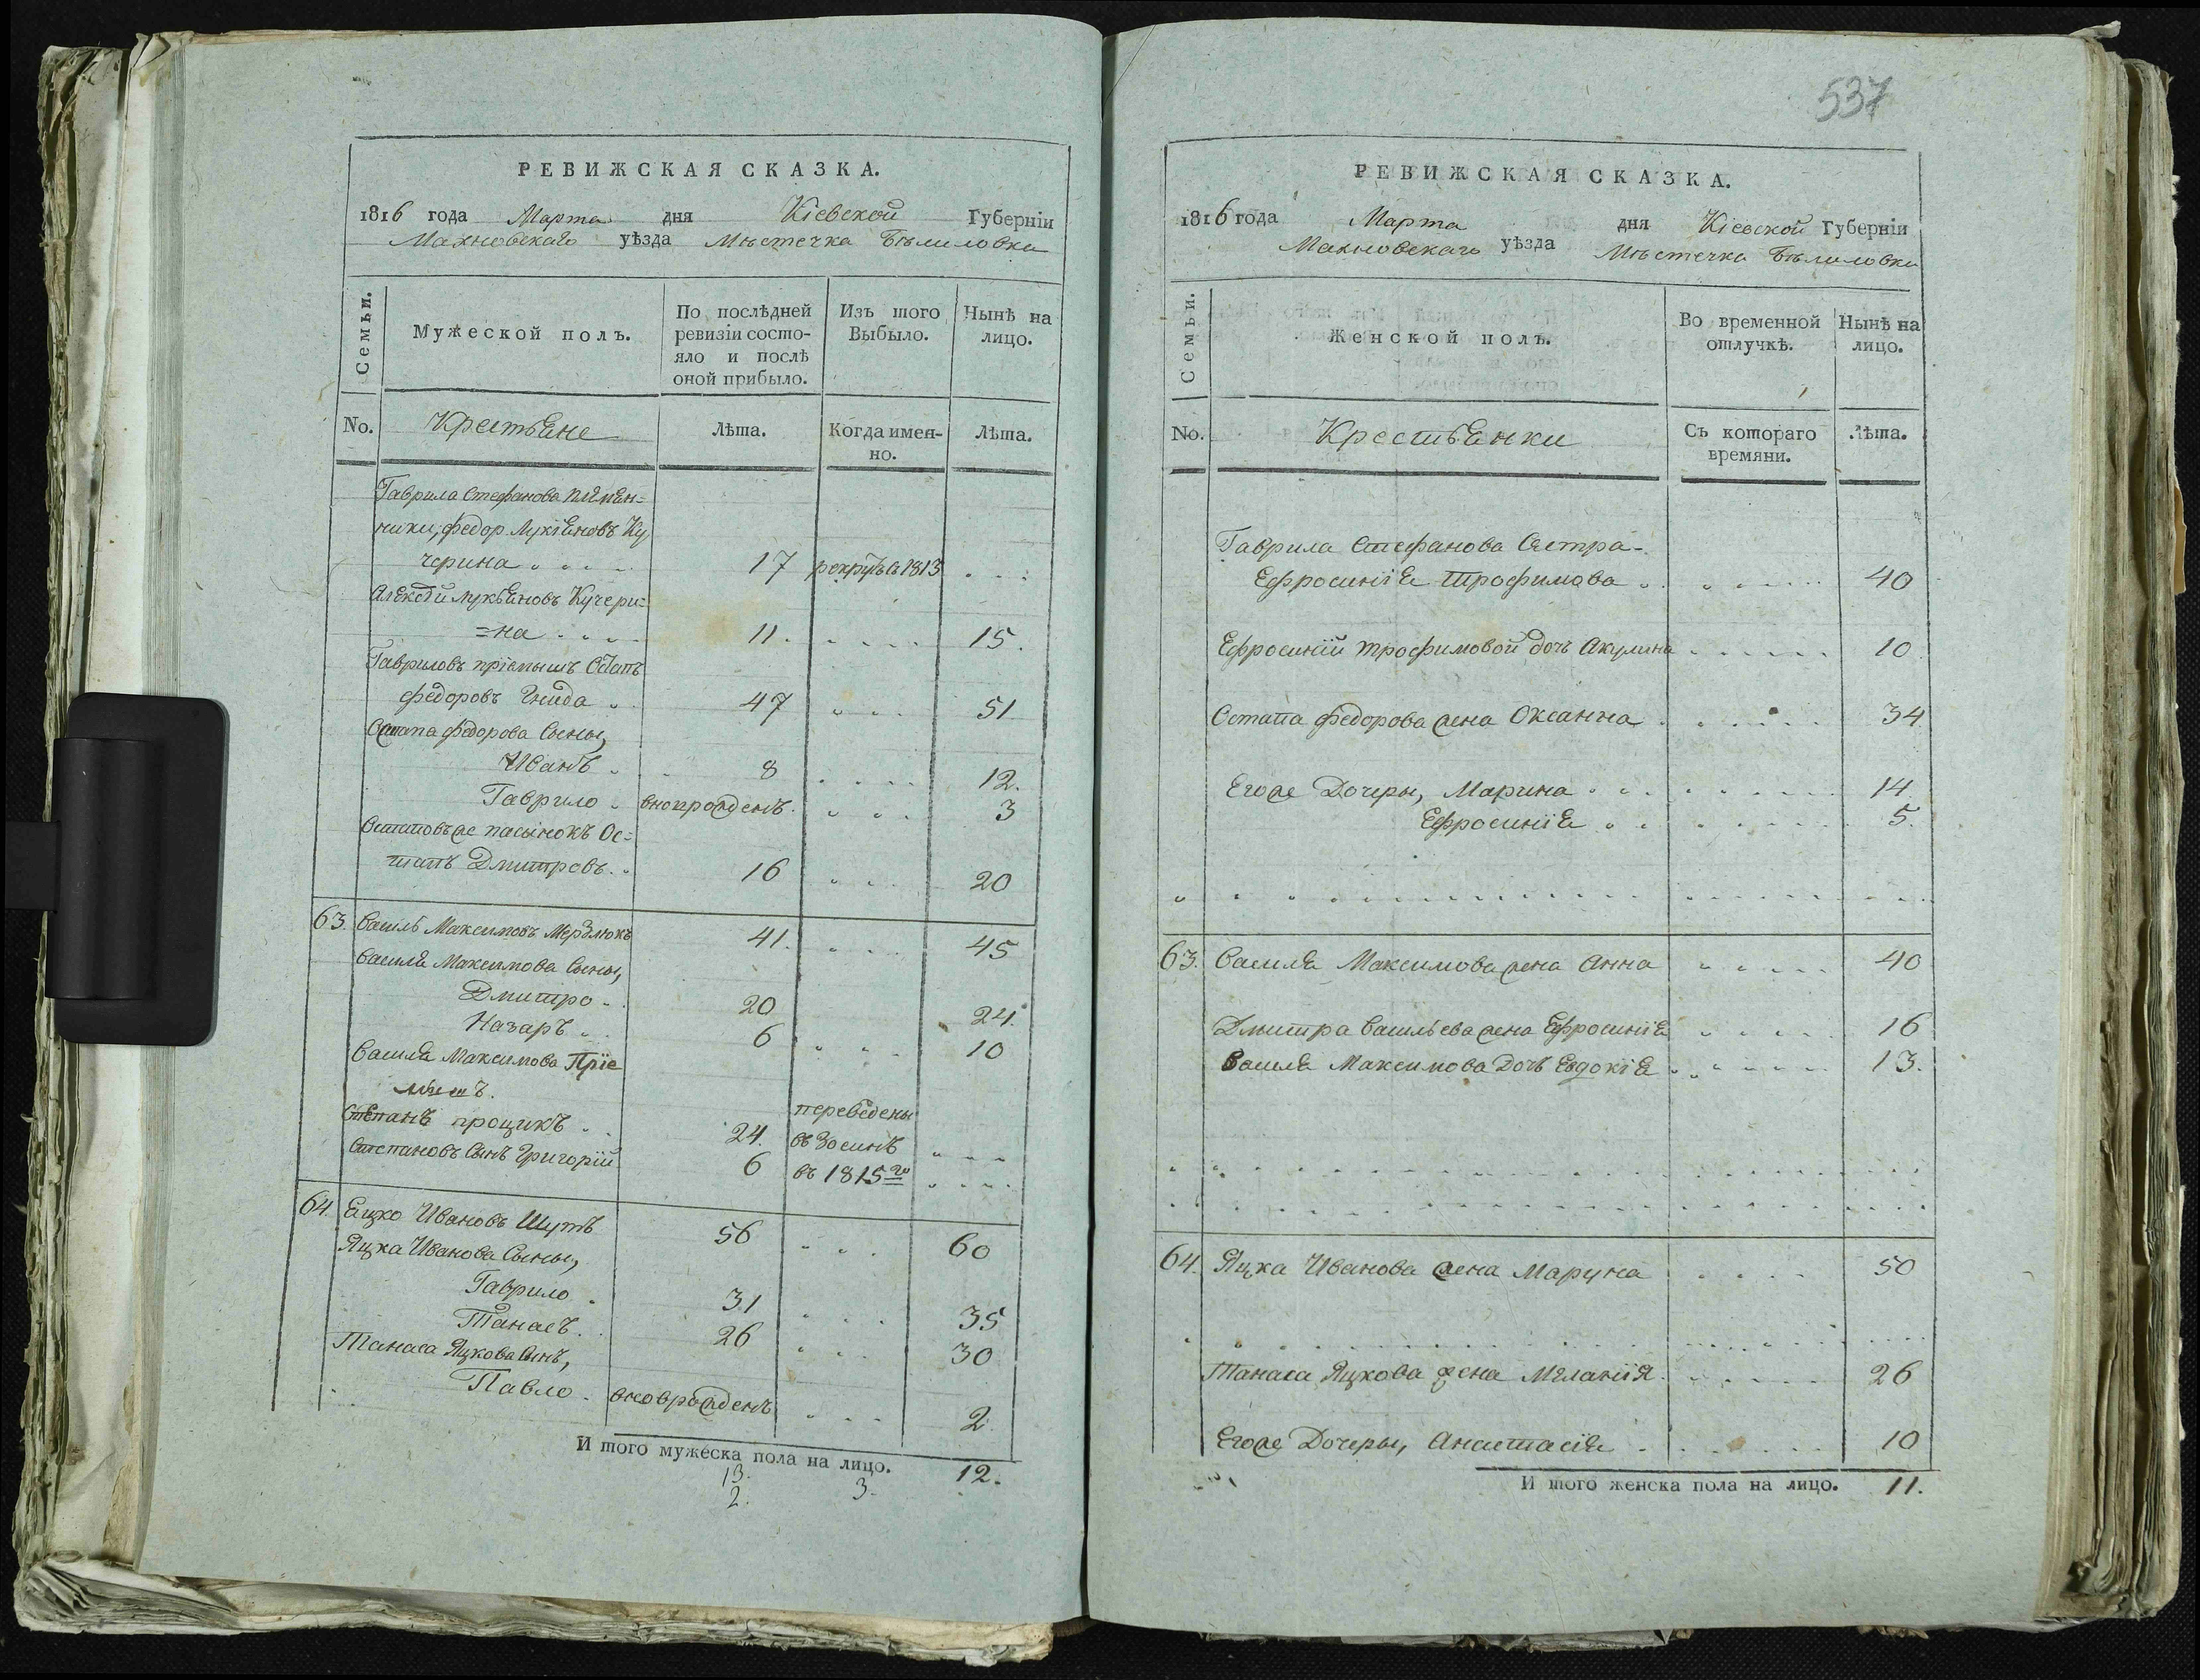 537
РЕВИЖСКАЯ СКАЗКА.
1816 года Марта дня Кіевской Губерніи
Махновскаго уѣзда Мѣстечка Бѣлиловки
Семьи.
Мужеской полъ.
По послѣдней ревизіи состояло и послѣ оной прибыло.
Изъ того Выбыло.
Нынѣ на лицо.
No. Крестьяне Лѣта. Когда именно. Лѣта.
Гаврила Стефанова племян=
ники, Федор Лукіяновъ Ку
черина 17 рекрутъ въ 1813
Алексѣй Лукьяновъ Кучери=
=на 11. 15.
Гавриловъ пріемышъ Остапъ
Федоровъ Гнида 47 51
Остапа Федорова Сыны,
Иванъ 8 12.
Гаврило вновърожденъ. 3
Остаповъ же пасынокъ Ос=
тапъ Дмитровъ. 16 20
63. Василь Максимовъ Мерзлюкъ 41. 45
Василя Максимова Сыны,
Дмитро 20 24.
Назаръ 6 10
Василя Максимова Пріе
мышъ.
Степанъ процикъ 24. переведены въ Зосинъ
Степановъ Сынъ Григорій 6 въ 1815го
64. Яцко Ивановъ Шутъ 56 60
Яцка Иванова Сыны,
Гаврило 31 35
Танасъ 26 30
Танаса Яцкова Сынъ,
Павло вновърожденъ 2
И того мужеска пола на лицо. 12.
13. 3.
2.
РЕВИЖСКАЯ СКАЗКА.
1816 года Марта дня Кіевской Губерніи
Махновскаго уѣзда Мѣстечка Бѣлиловки
Семьи.
Женской полъ.
Во временной отлучкѣ.
Нынѣ на лицо.
No. Крестьянки Съ котораго времяни. Лѣта.
Гаврила Стефанова Сестра-
Ефросинія Трофимова 40
Ефросиніи Трофимовой дочь Акулина 10
Остапа Федорова жена Оксанна 34
Его же Дочеры, Марина 14
Ефросинія 5.
63. Василя Максимова жена Анна 40
Дмитра Васильева жена Ефросинія 16
Василя Максимова Дочь Евдокія 13.
64. Яцка Иванова жена Маруна 50
Танаса Яцкова жена Меланія 26
Его же Дочеры, Анастасія 10
И того женска пола на лицо. 11.